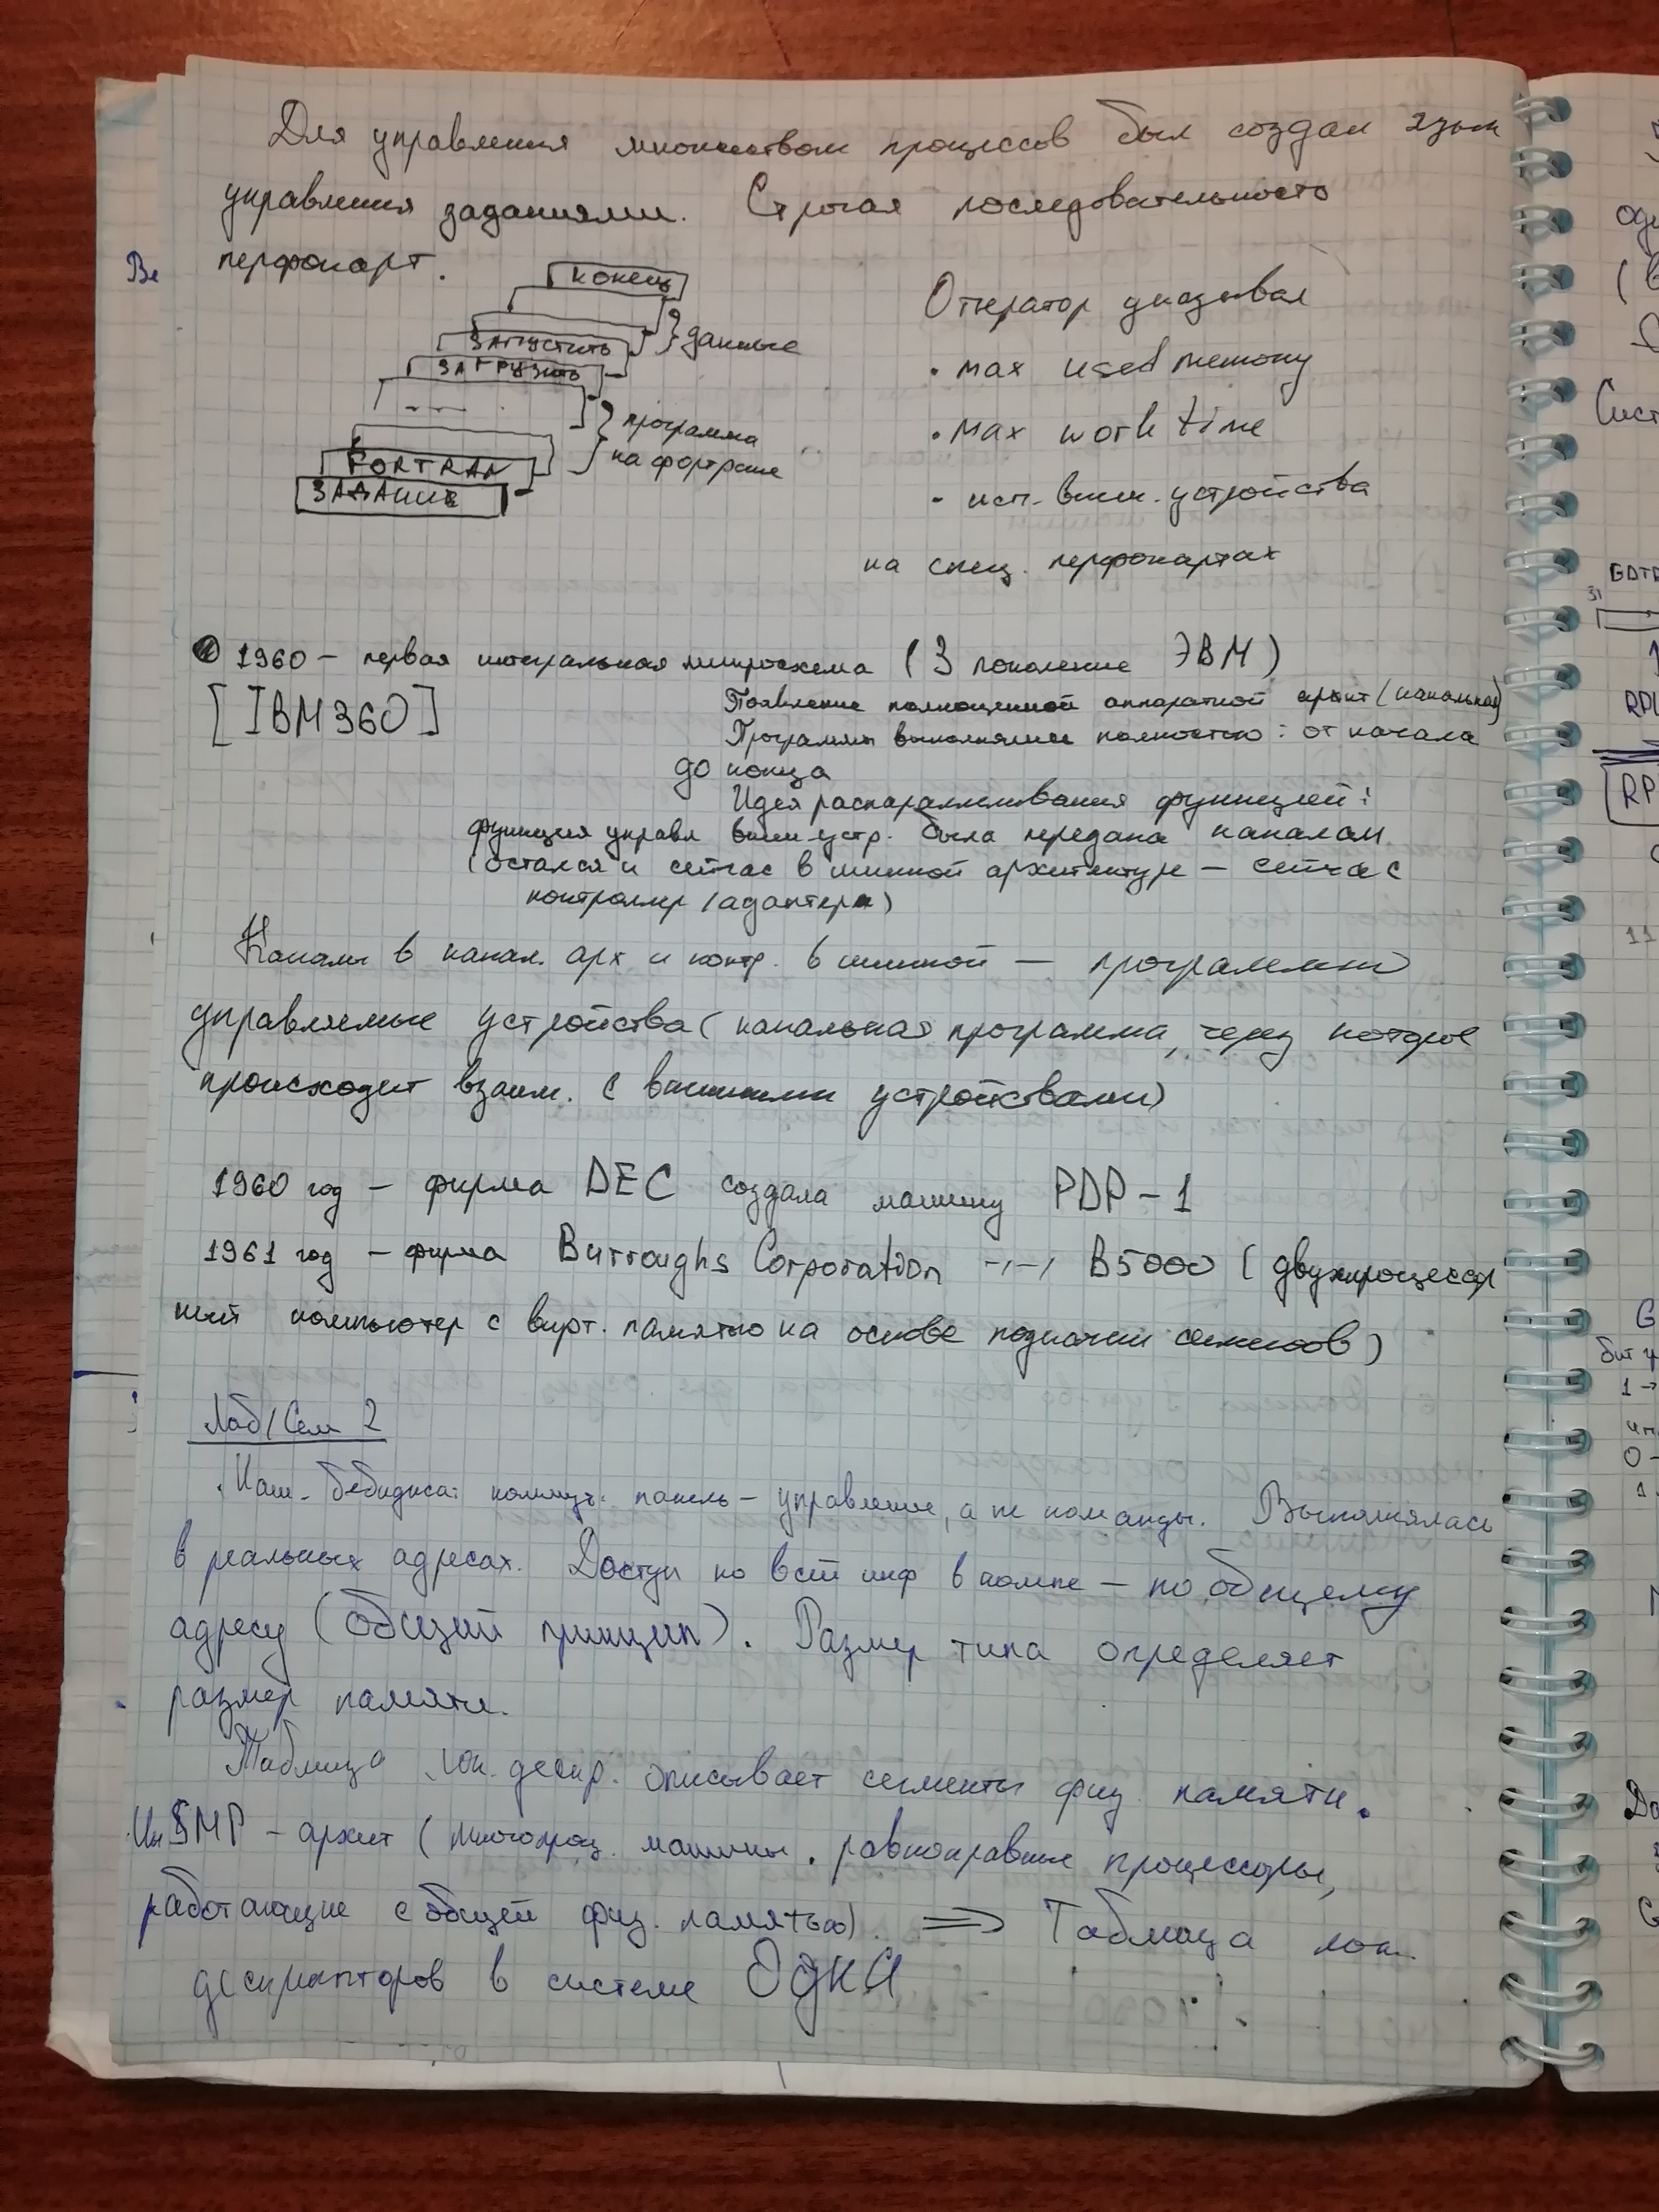 Для управления множеством процессов был создан язык
управления заданиями. Строгая последовательность
перфокарт.
КОНЕЦ
данные
ЗАПУСТИТЬ
ЗАГРУЗИТЬ
...
программа
на фортране
FORTRAN
ЗАДАНИЕ
Оператор указывал
• max used memory
• max work time
• исп. внеш. устройства
на спец. перфокартах
1960 – первая интегральная микросхема (3 поколение ЭВМ)
[IBM360]
Появление полноценной аппаратной архит (канальная)
Программы выполнялись полностью: от начала
до конца
Идея распараллеливания функций:
функция управл внеш устр. была передана каналам
(остался и сейчас в шинной архитектуре – сейчас
контроллер/адаптеры)
Каналы в канал. арх и контр. в шинной – программно
управляемые устройства (канальная программа, через которые
происходит взаим. с внешними устройствами)
1960 год – фирма DEC создала машину PDP-1
1961 год – фирма Burroughs Corporation -"-" B5000 (двухпроцессор
ный компьютер с вирт. памятью на основе подкачки сегментов)
Лаб/Сем 2
Маш. Бебиджа: коммут. панель – управление, а не команды. Выполнялась
в реальных адресах. Доступ ко всей инф в компе – по общему
адресу (общий принцип). Размер типа определяет
размер памяти.
Таблица лок. дескр. описывает сегменты физ. памяти.
SMP – архит (многопроц. машины. равноправные процессоры,
работающие с общей физ. памятью) => Таблица
дескрипторов в системе ОДНА
Ве